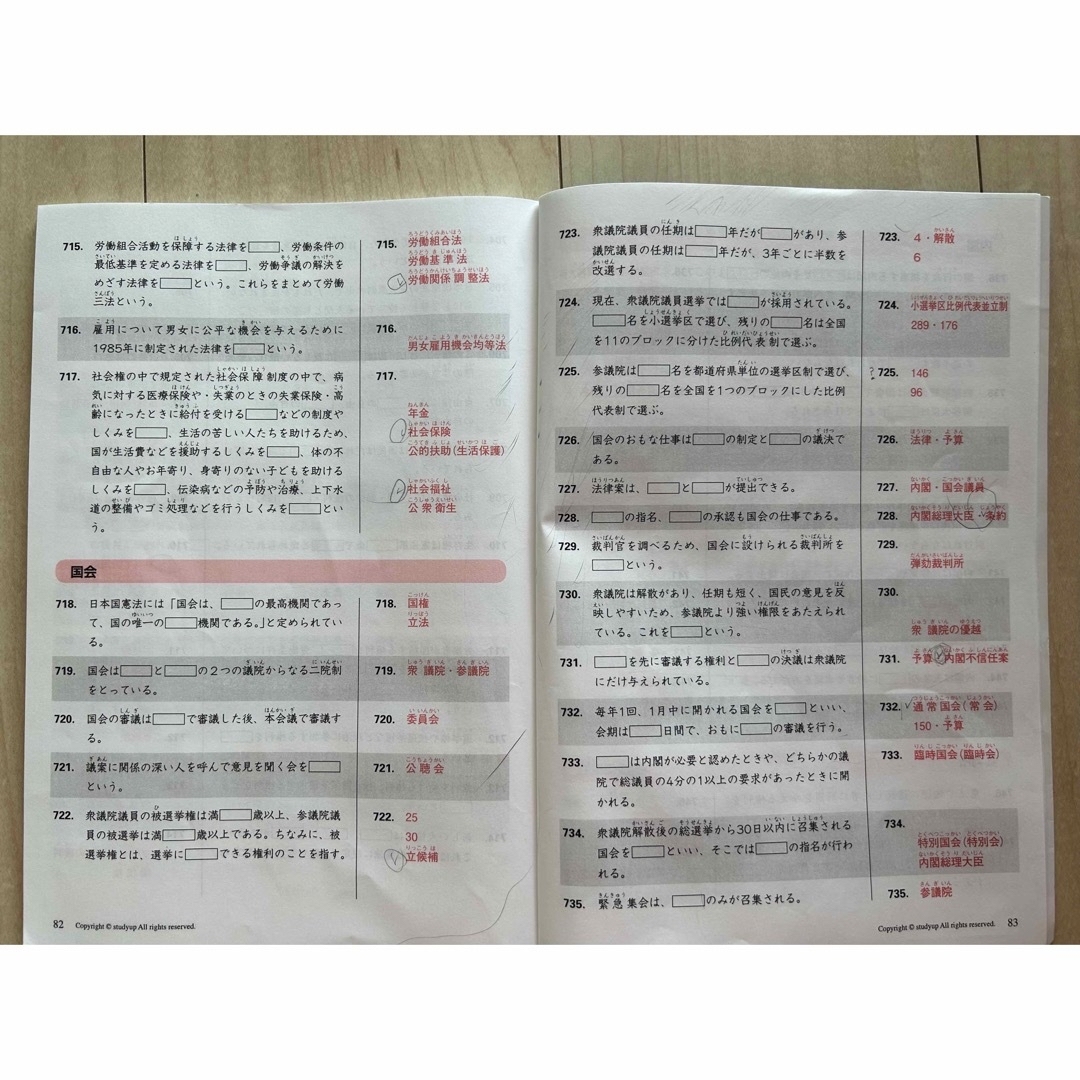 715. 労働組合活動を保障する法律を□、労働条件の
最低基準を定める法律を□、労働争議の解決を
めざす法律を□という。これらをまとめて労働
三法という。
715. 労働組合法
労働基準法
労働関係調整法
716. 雇用について男女に公平な機会を与えるために
1985年に制定された法律を□という。
716.
男女雇用機会均等法
717. 社会権の中で規定された社会保障制度の中で、病
気に対する医療保険や・失業のときの失業保険・高
齢になったときに給付を受ける□などの制度や
しくみを□、生活の苦しい人たちを助けるため、
国が生活費などを援助するしくみを□、体の不
自由な人やお年寄り、身寄りのない子どもを助ける
しくみを□、伝染病などの予防や治療、上下水
道の整備やゴミ処理などを行うしくみを□とい
う。
717.
年金
社会保険
公的扶助(生活保護)
社会福祉
公衆衛生
国会
718. 日本国憲法には「国会は、□の最高機関であっ
て、国の唯一の□機関である。」と定められてい
る。
718. 国権
立法
719. 国会は□と□の2つの議院からなる二院制
をとっている。
719. 衆議院・参議院
720. 国会の審議は□で審議した後、本会議で審議す
る。
720. 委員会
721. 議案に関係の深い人を呼んで意見を聞く会を□
という。
721. 公聴会
722. 衆議院議員の被選挙権は満□歳以上、参議院議
員の被選挙は満□歳以上である。ちなみに、被
選挙権とは、選挙に□できる権利のことを指す。
722. 25
30
立候補
82 Copyright © studyup All rights reserved.
723. 衆議院議員の任期は□年だが□があり、参
議院議員の任期は□年だが、3年ごとに半数を
改選する。
723. 4・解散
6
724. 現在、衆議院議員選挙では□が採用されている。
□名を小選挙区で選び、残りの□名は全国
を11のブロックに分けた比例代表制で選ぶ。
724.
小選挙区比例代表並立制
289・176
725. 参議院は□名を都道府県単位の選挙区制で選び、
残りの□名を全国を1つのブロックにした比例
代表制で選ぶ。
725. 146
96
726. 国会のおもな仕事は□の制定と□の議決で
ある。
726. 法律・予算
727. 法律案は、□と□が提出できる。
727. 内閣・国会議員
728. □の指名、□の承認も国会の仕事である。
728. 内閣総理大臣・条約
729. 裁判官を調べるため、国会に設けられる裁判所を
□という。
729.
弾劾裁判所
730. 衆議院は解散があり、任期も短く、国民の意見を反
映しやすいため、参議院より強い権限をあたえられ
ている。これを□という。
730.
衆議院の優越
731. □を先に審議する権利と□の決議は衆議院
にだけ与えられている。
731. 予算・内閣不信任案
732. 毎年1回、1月中に開かれる国会を□といい、
会期は□日間で、おもに□の審議を行う。
732. 通常国会(常会)
150・予算
733. □は内閣が必要と認めたときや、どちらかの議
院で総議員の4分の1以上の要求があったときに開
かれる。
733. 臨時国会(臨時会)
734. 衆議院解散後の総選挙から30日以内に召集される
国会を□といい、そこでは□の指名が行わ
れる。
734.
特別国会(特別会)
内閣総理大臣
735. 緊急集会は、□のみが召集される。
735. 参議院
Copyright © studyup All rights reserved. 83